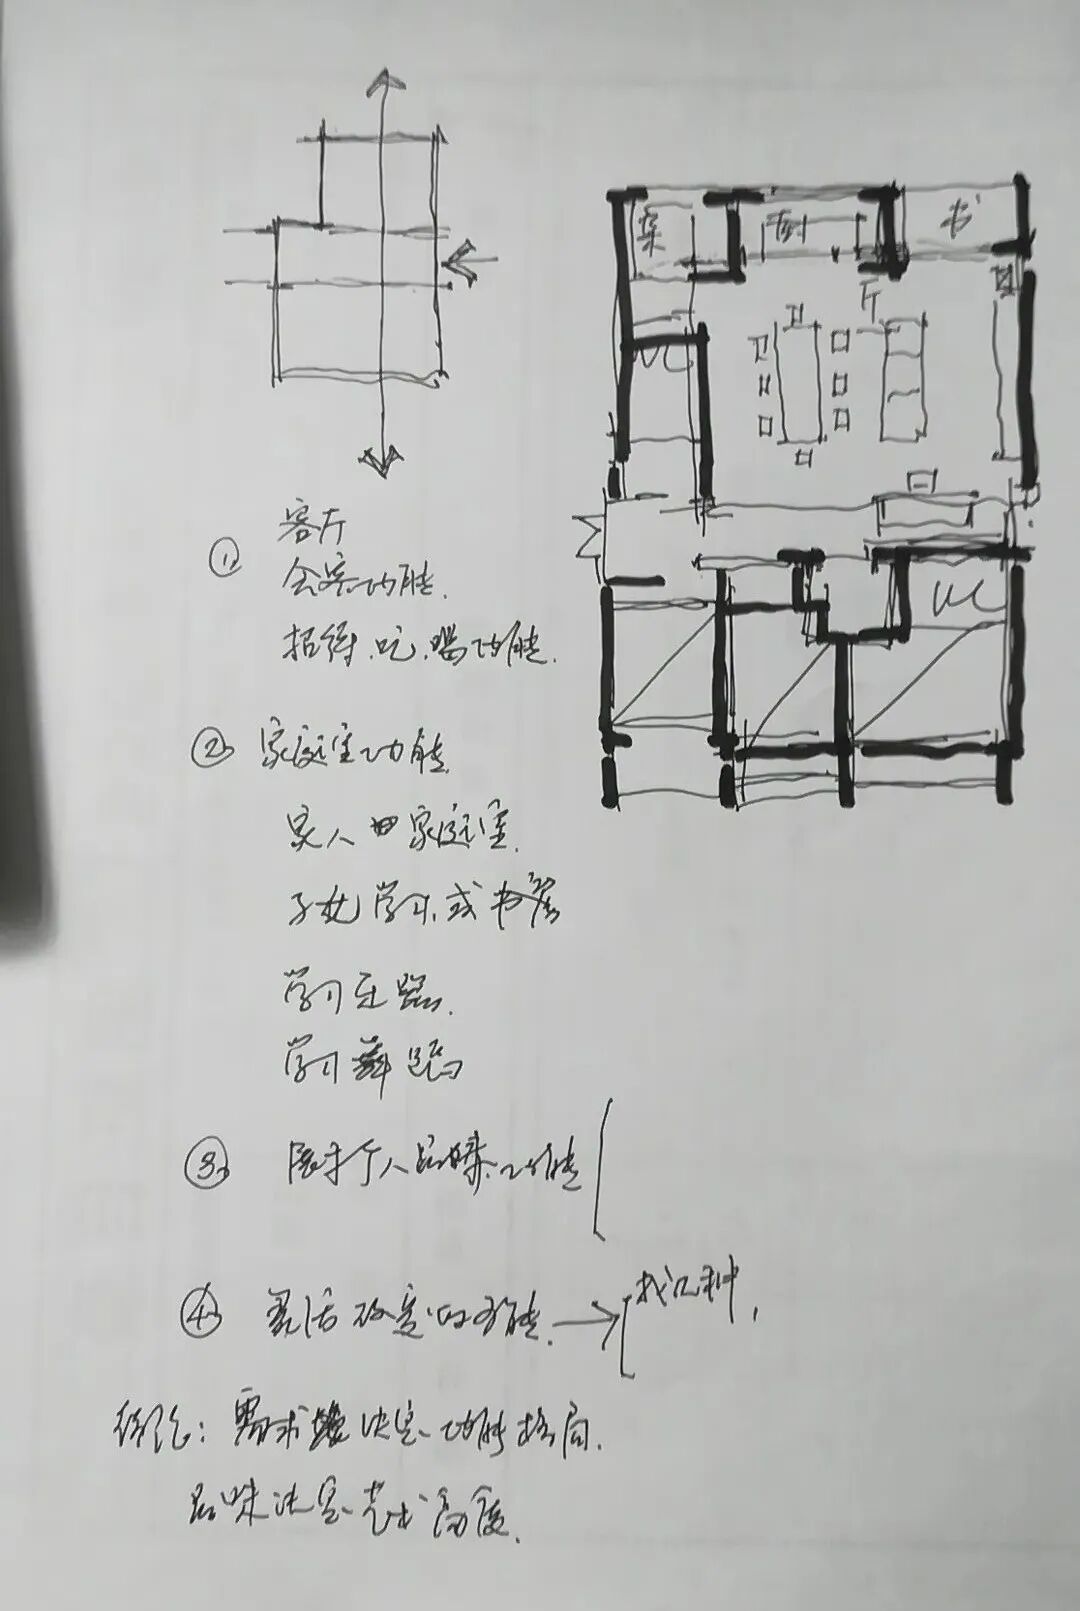 菜
厨
书
厅
WC
WC
① 客厅
会客功能.
招待.吃.喝功能.
② 家庭室功能
家人 家庭室.
子女学习.或书房
学习乐器.
学习舞蹈
③ 展示个人品味.功能
④ 灵活改变的功能. → 找几种,
结论: 需求 决定功能格局.
品味决定艺术高度.